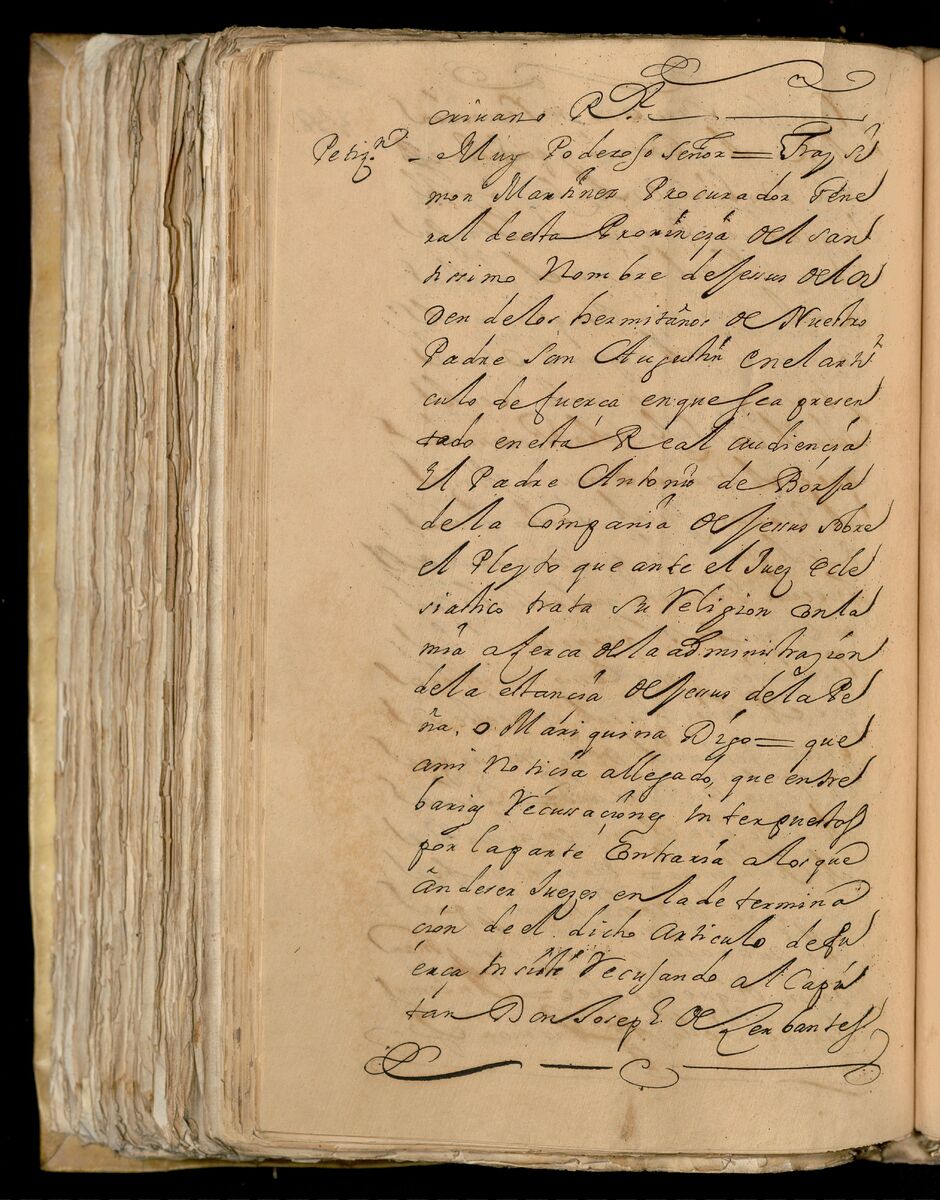 crivano Rl.
Petiz.n - Muy Poderoso señor = Fray si
mon Martinez Procurador Gene
ral deesta Provinçia del san
tissimo Nombre de Jesus de la or
den delos hermitaños de Nuestro
Padre San Augustin en el arti
culo de fuerça en que se a presen
tado en esta Real audiencia
El Padre Antonio de Borja
de la Compania de Jesus sobre
el Pleyto que ante el Juez ecle
siastico trata su Religion con la
mia aserca de la administraçion
de la estancia de Jesus de la Pe
ña, o Mariquina Digo = que
a mi Noticia allegado, que entre
barias Recussaçiones interpuestas
por la parte Contraria a los que
an de ser Juezes en la de termina
ción de el dicho articulo de fu
erça insiste Recusando al Capi
tan Don Joseph de Zerbantes